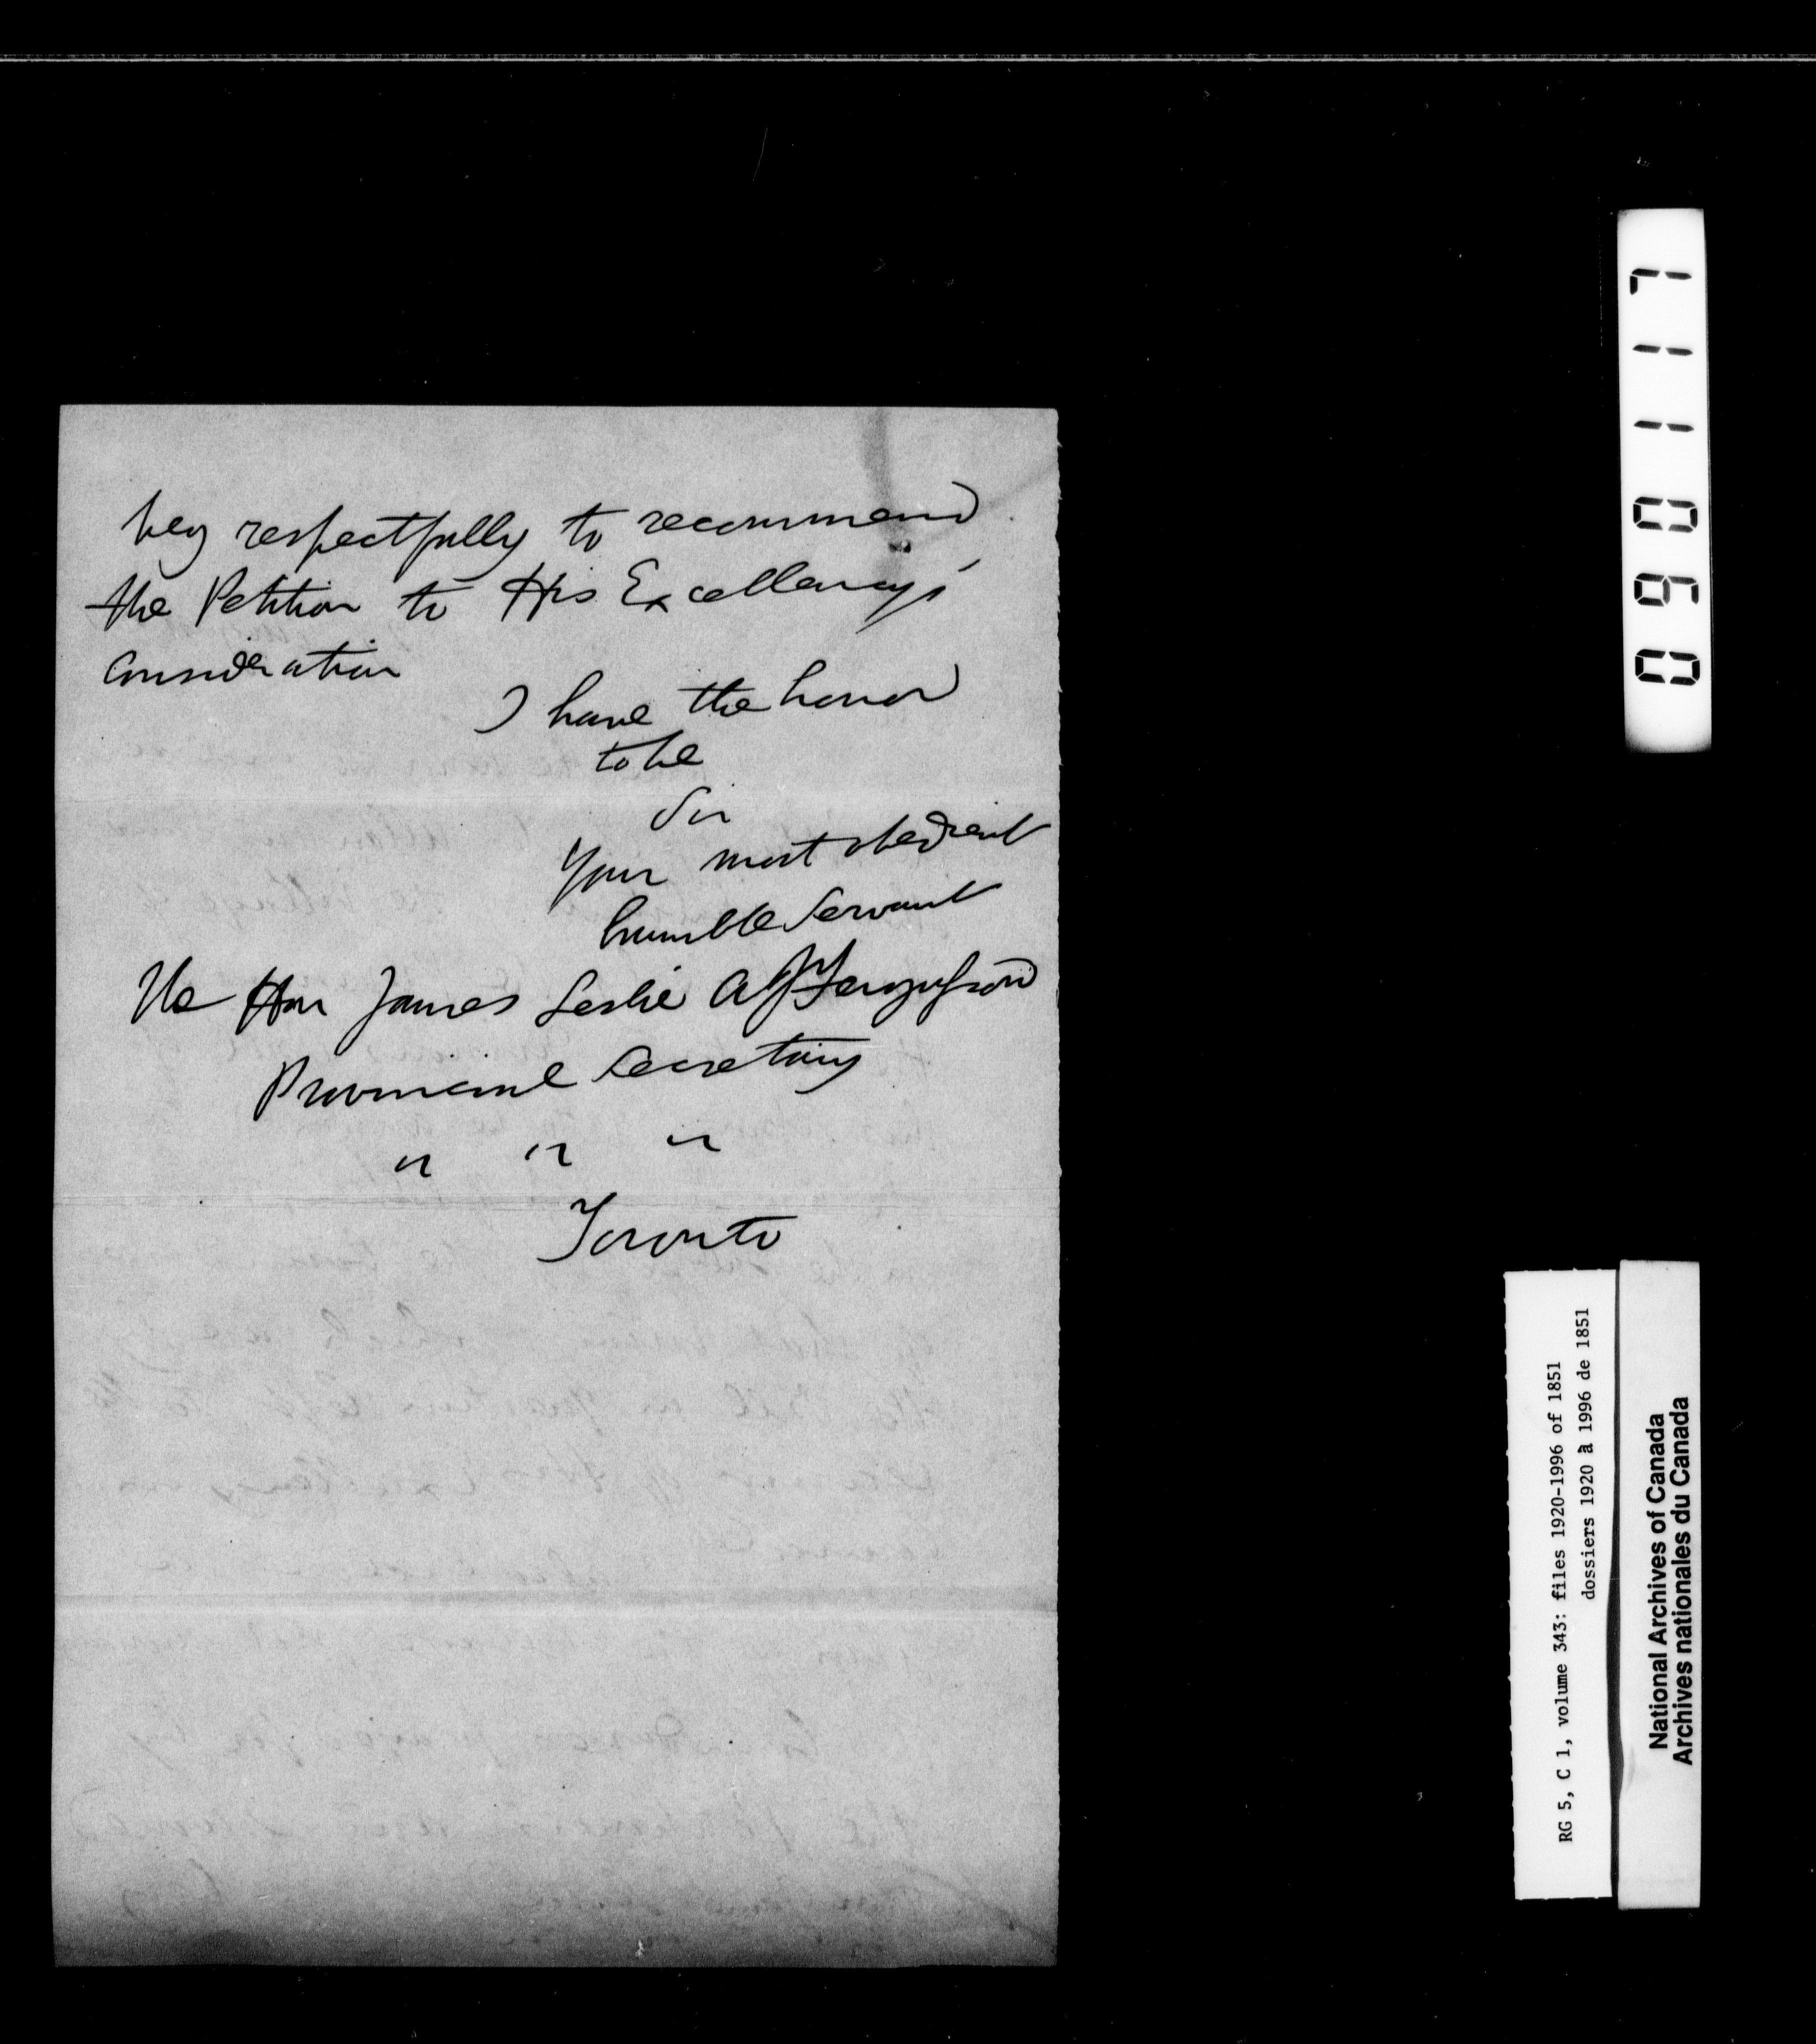 beg respectfully to recommend
the Petition to His Excellency's
Consideration
I have the honor
to be
Sir
Your most obedient
humble Servant
The Hon James Leslie A J Fergusson
Provincial Secretary
" " "
Toronto
090117
RG 5, C 1, volume 343: files 1920-1996 of 1851
dossiers 1920 à 1996 de 1851
National Archives of Canada
Archives nationales du Canada